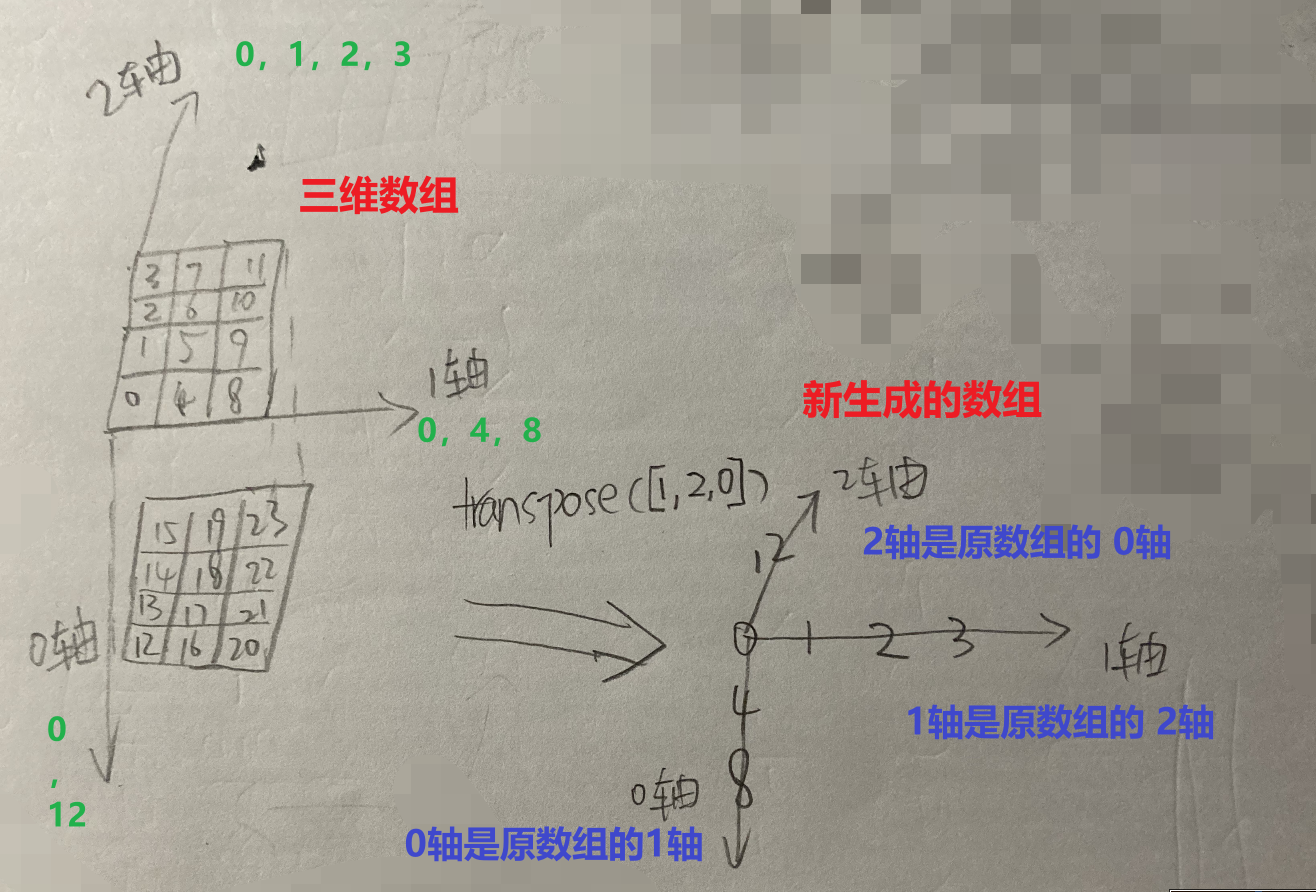 2轴
0, 1, 2, 3
三维数组
3 7 11
2 6 10
1 5 9
0 4 8
1轴
0, 4, 8
15 19 23
14 18 22
13 17 21
12 16 20
0轴
0
,
12
transpose([1,2,0])
新生成的数组
2轴
2轴是原数组的 0轴
12
0 1 2 3
1轴
1轴是原数组的 2轴
4
8
0轴
0轴是原数组的1轴